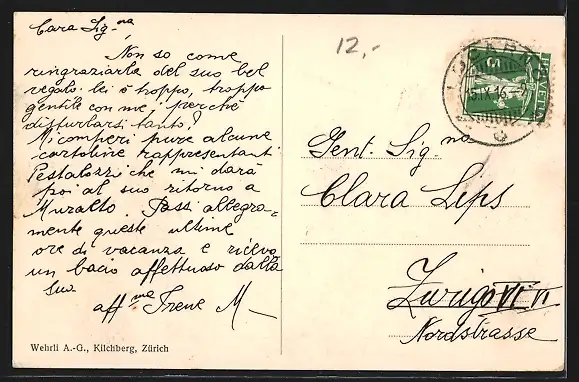 Cara Sig.na
Non so come
ringraziarla del suo bel
regalo. Lei è troppo, troppo
gentile con me, perchè
disturbarsi tanto?
Mi comperi pure alcune
cartoline rappresentanti
Pestalozzi che mi darà
poi al suo ritorno a
Muralto. Passi allegra-
mente queste ultime
ore di vacanza e riceva
un bacio affettuoso dalla
sua
aff.ma Irene M
Wehrli A.-G., Kilchberg, Zürich
12,-
HELVETIA
15.IX.16
Gent. Sig.na
Clara Leps
Zurigo VI
Nordstrasse